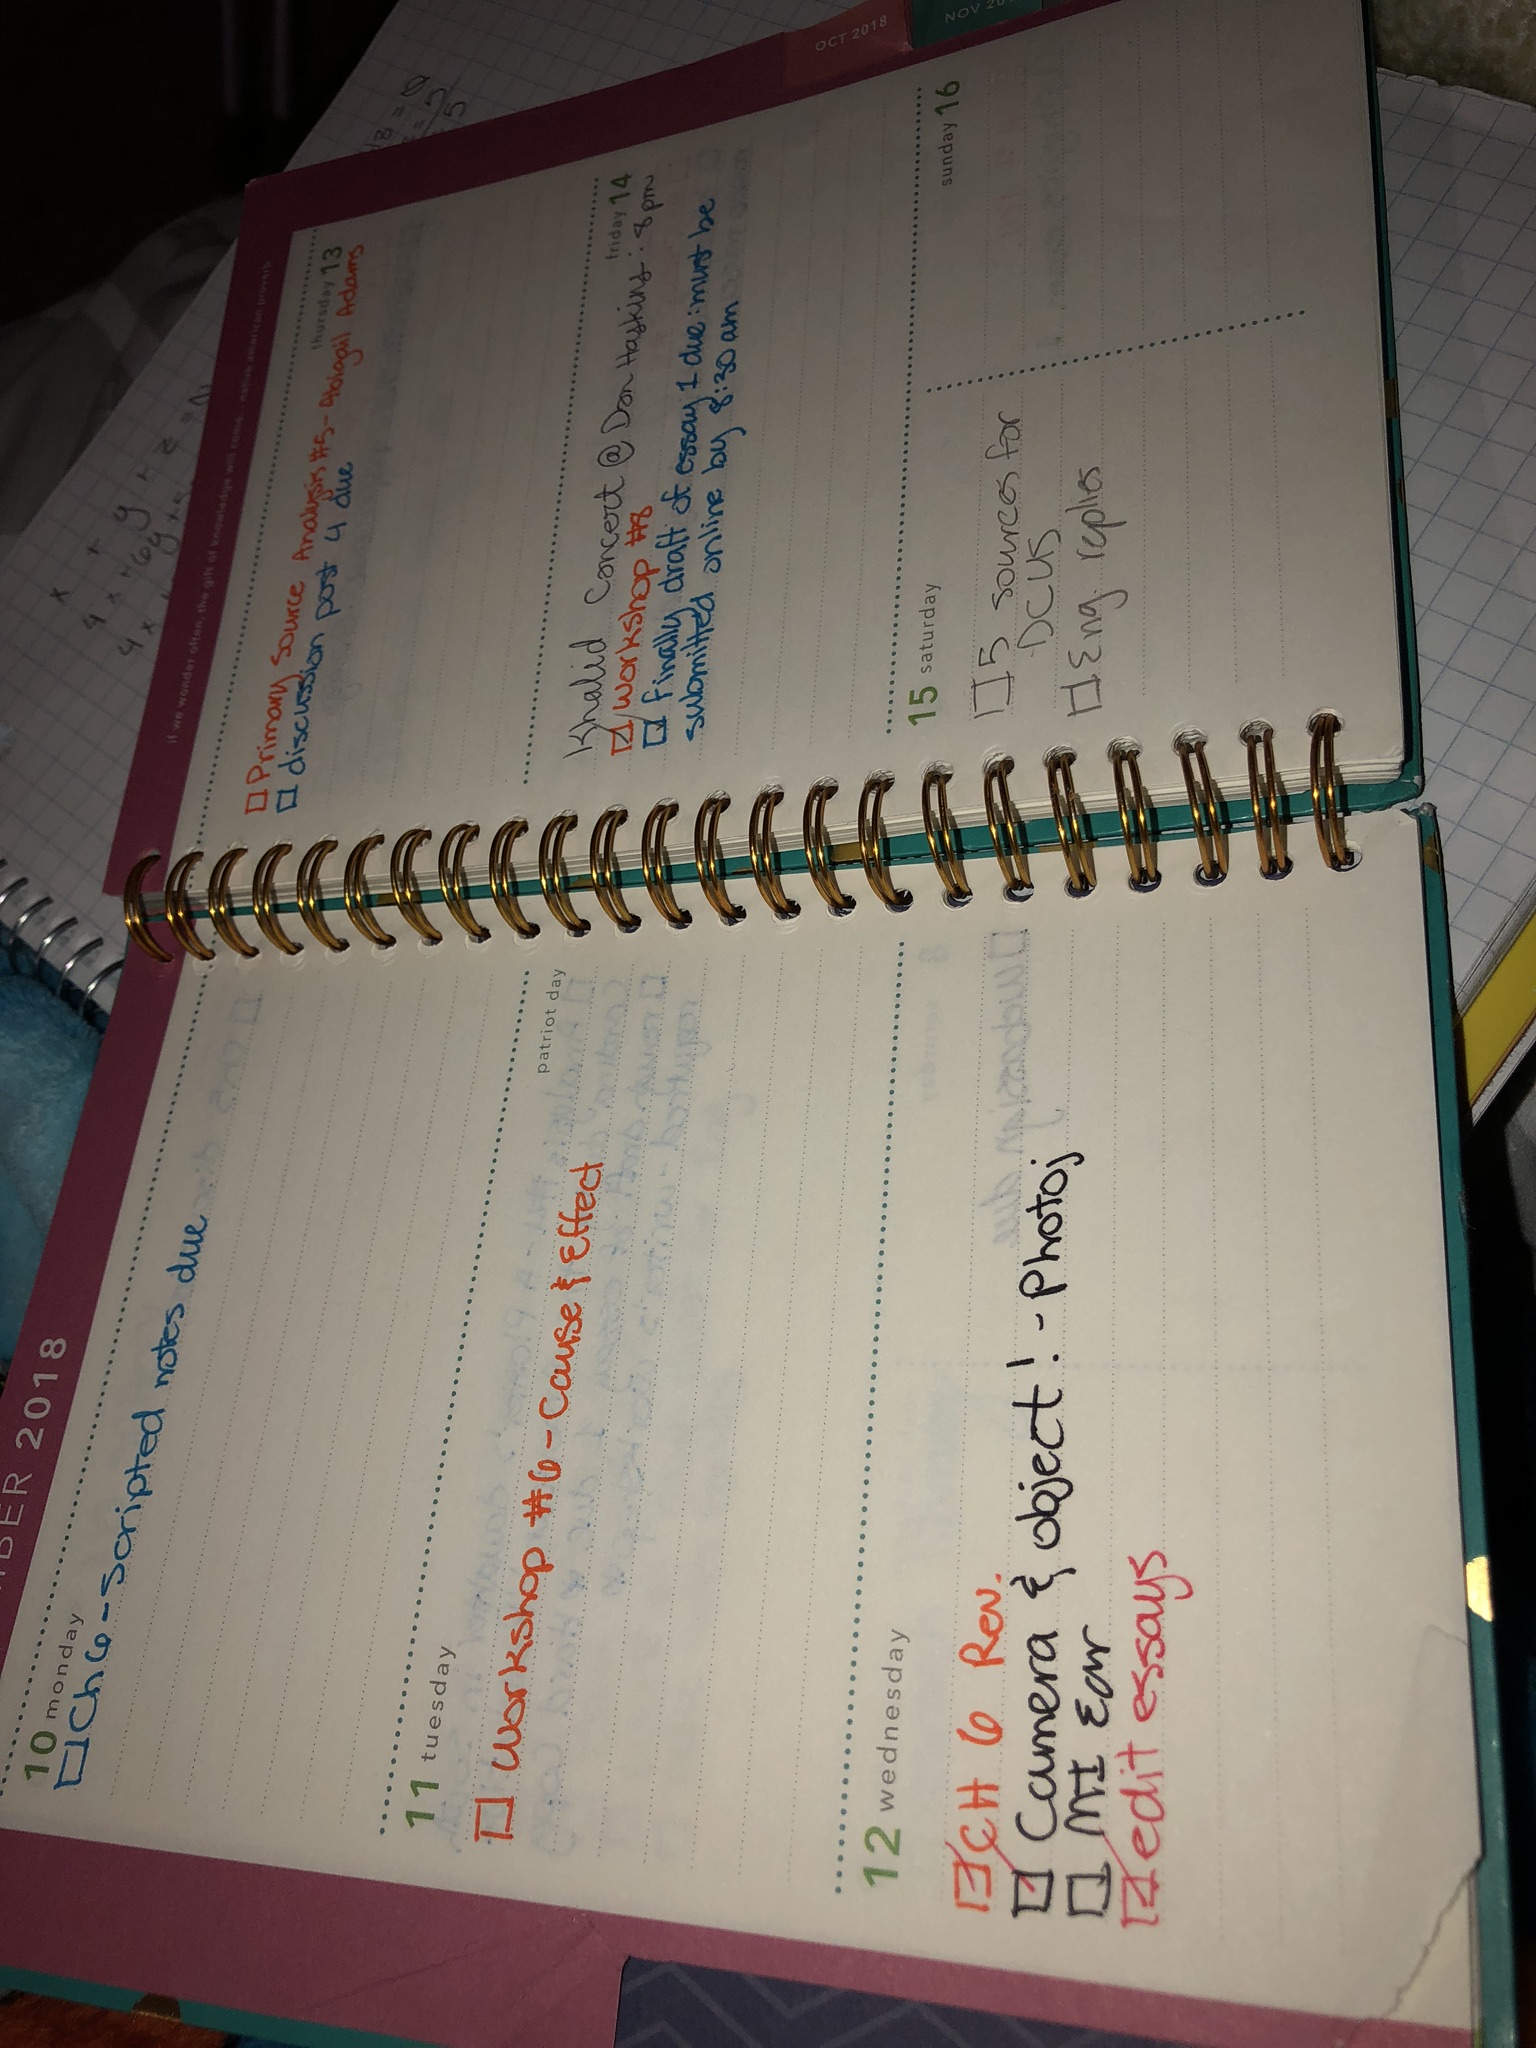 BER 2018
10 monday
Ch 6 - Scripted notes due
11 tuesday
patriot day
Workshop #6 - Cause & Effect
12 wednesday
CH 6 Rev.
Camera & object! - Photoj
MTI Ear
edit essays
OCT 2018
NOV 20
if we wonder often, the gift of knowledge will come. native american proverb
thursday 13
Primary Source Analysis #5 - Abigail Adams
discussion post 4 due
friday 14
Khalid Concert @ Don Haskins: 8 pm
Workshop #8
finally draft of essay 1 due: must be
submitted online by 8:30 am
15 saturday
5 sources for
DCUS
Eng replies
sunday 16